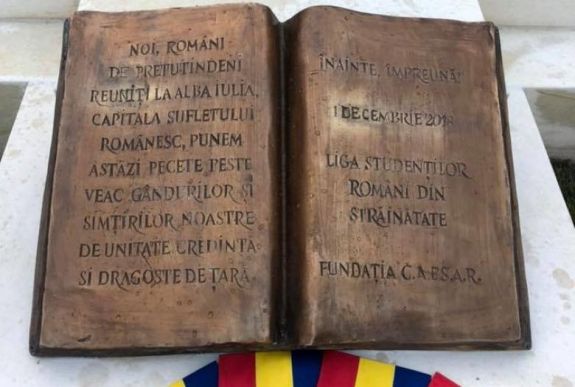 NOI, ROMÂNI
DE PRETUTINDENI
REUNIȚI LA ALBA IULIA,
CAPITALA SUFLETULUI
ROMÂNESC, PUNEM
ASTĂZI PECETE PESTE
VEAC GÂNDURILOR ȘI
SIMȚIRILOR NOASTRE
DE UNITATE CREDINȚĂ
ȘI DRAGOSTE DE ȚARĂ.
ÎNAINTE, ÎMPREUNĂ!
1 DECEMBRIE 2018
LIGA STUDENȚILOR
ROMÂNI DIN
STRĂINĂTATE
FUNDAȚIA C.A.E.S.A.R.